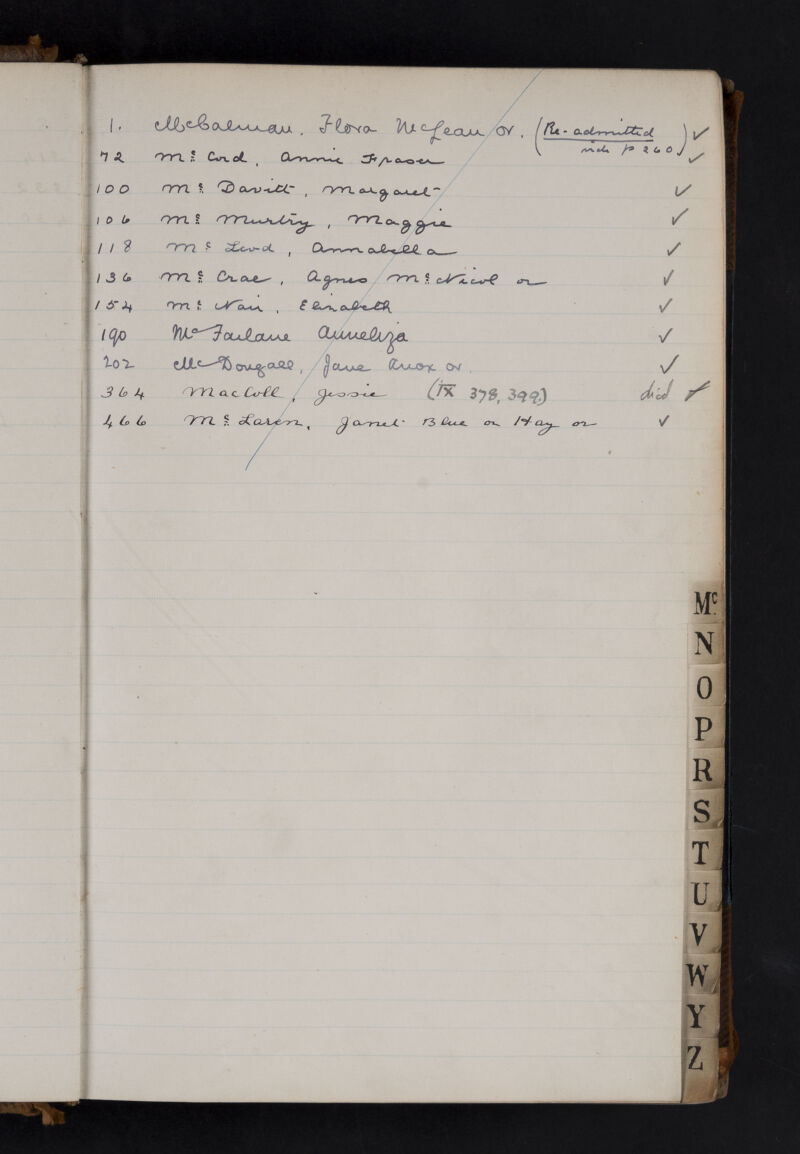 1. McCalman, Flora McLean or. (Re-admitted vide p 260) ✓
72 Mc Cord, Annie Fraser ✓
100 Mc Davitt, Margaret ✓
106 Mc Murtry, Maggie ✓
118 Mc Leod, Annabella ✓
136 Mc Crae, Agnes McNicol or ✓
154 Mc Nair, Elizabeth ✓
190 McFarlane Anneliza ✓
202 McDougall, Jane Knox or. ✓
364 MacColl, Jessie (IX 378, 399) died ✓
466 Mc Laren, Janet Blue or Hay or ✓
Mc
N
O
P
R
S
T
U
V
W
Y
Z